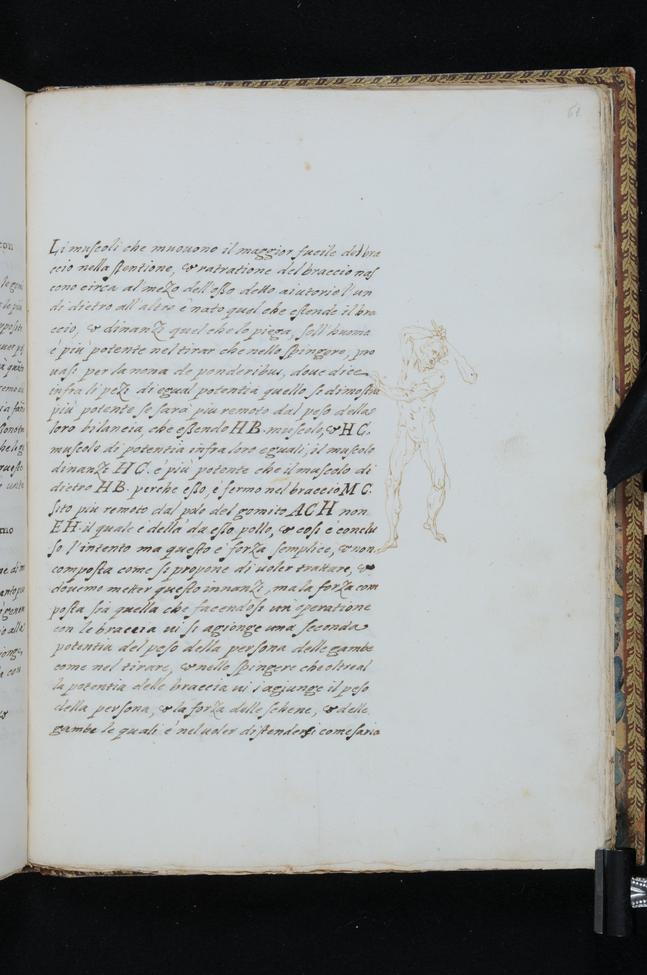 61
Li muscoli che muovono il maggior fucile del bra
ccio nella stentione, & ratratione del braccio nas
cono circa al mezo dell'osso detto aiutorio l'un
di dietro all'altro è nato quel che estende il bra
ccio, & dinanzi quel che lo piega, se l'huomo
è più potente nel tirar che nello spingere, pro
uasi per la nona de ponderibus, doue dice
infra li pezi di egual potentia quello se dimostra
più potente se sarà più remoto dal peso della
loro bilancia, che essendo HB. muscolo, & HC.
muscolo di potentia infra loro eguali, il muscolo
dinanzi HC. è più potente che il muscolo di
dietro HB. perche esso, è fermo nel braccio MC.
sito più remoto dal polo del gomito ACH non
EH. il quale è dellà da esso pollo, & cosi è conclu
so l'intento ma questo è forza semplice, & non
composta come si propone di uoler trattare, &
douemo metter questo innanzi, ma la forza com
posta sea quella che facendosi un operatione
con le braccia ui si agionge una seconda
potentia del peso della persona delle gambe
come nel tirare, & nello spingere che oltre al
la potentia delle braccia ui s'agiunge il peso
della persona, & la forza delle schene, & delle
gambe le quali è nel uoler distendersi come saria